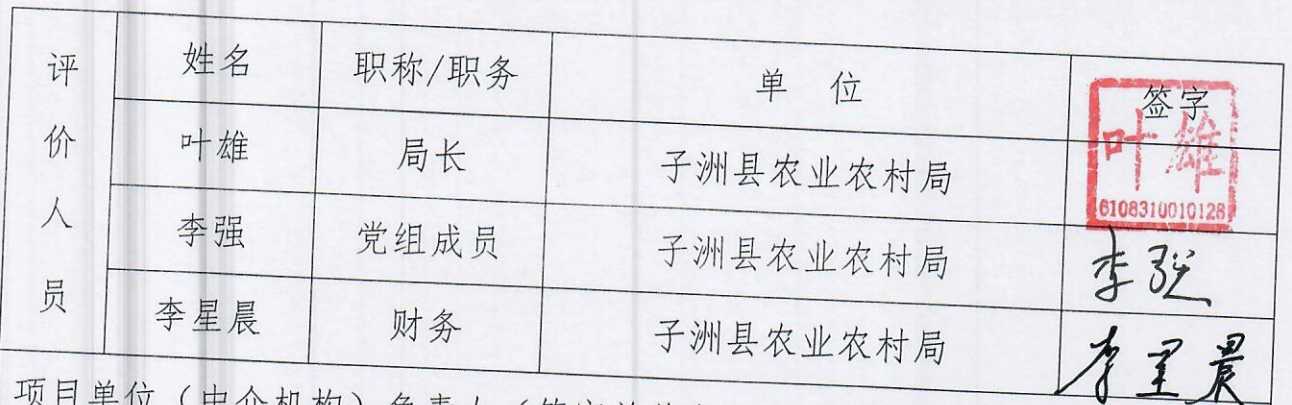 评价人员 姓名 职称/职务 单 位 签字
叶雄 局长 子洲县农业农村局 叶雄
6108310010128
李强 党组成员 子洲县农业农村局 李强
李星晨 财务 子洲县农业农村局 李星晨
项目单位（中介机构）负责人（签字并盖